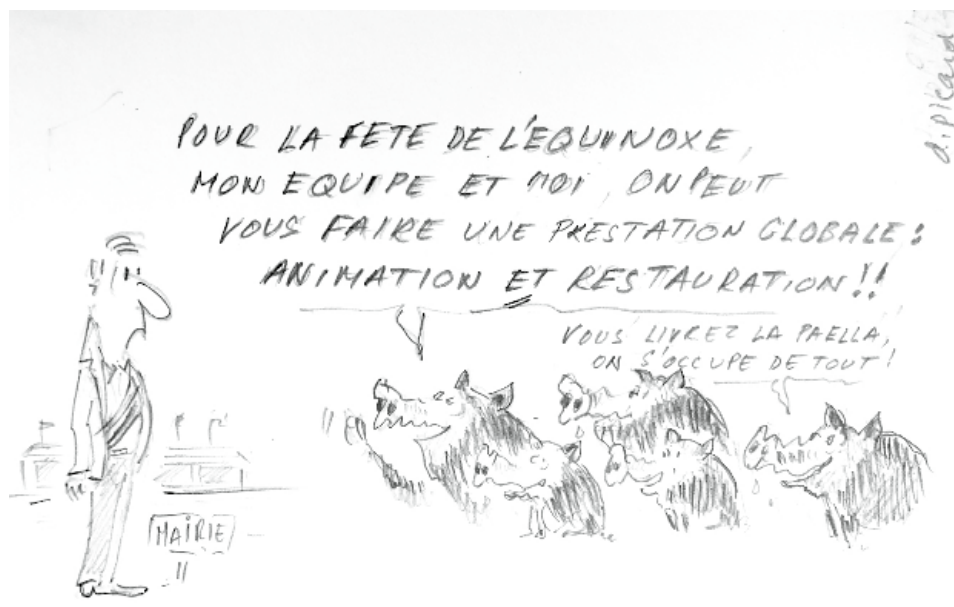 POUR LA FETE DE L'EQUINOXE,
MON EQUIPE ET MOI, ON PEUT
VOUS FAIRE UNE PRESTATION GLOBALE :
ANIMATION ET RESTAURATION !!
VOUS LIVREZ LA PAELLA,
ON S'OCCUPE DE TOUT !
MAIRIE
d. picard